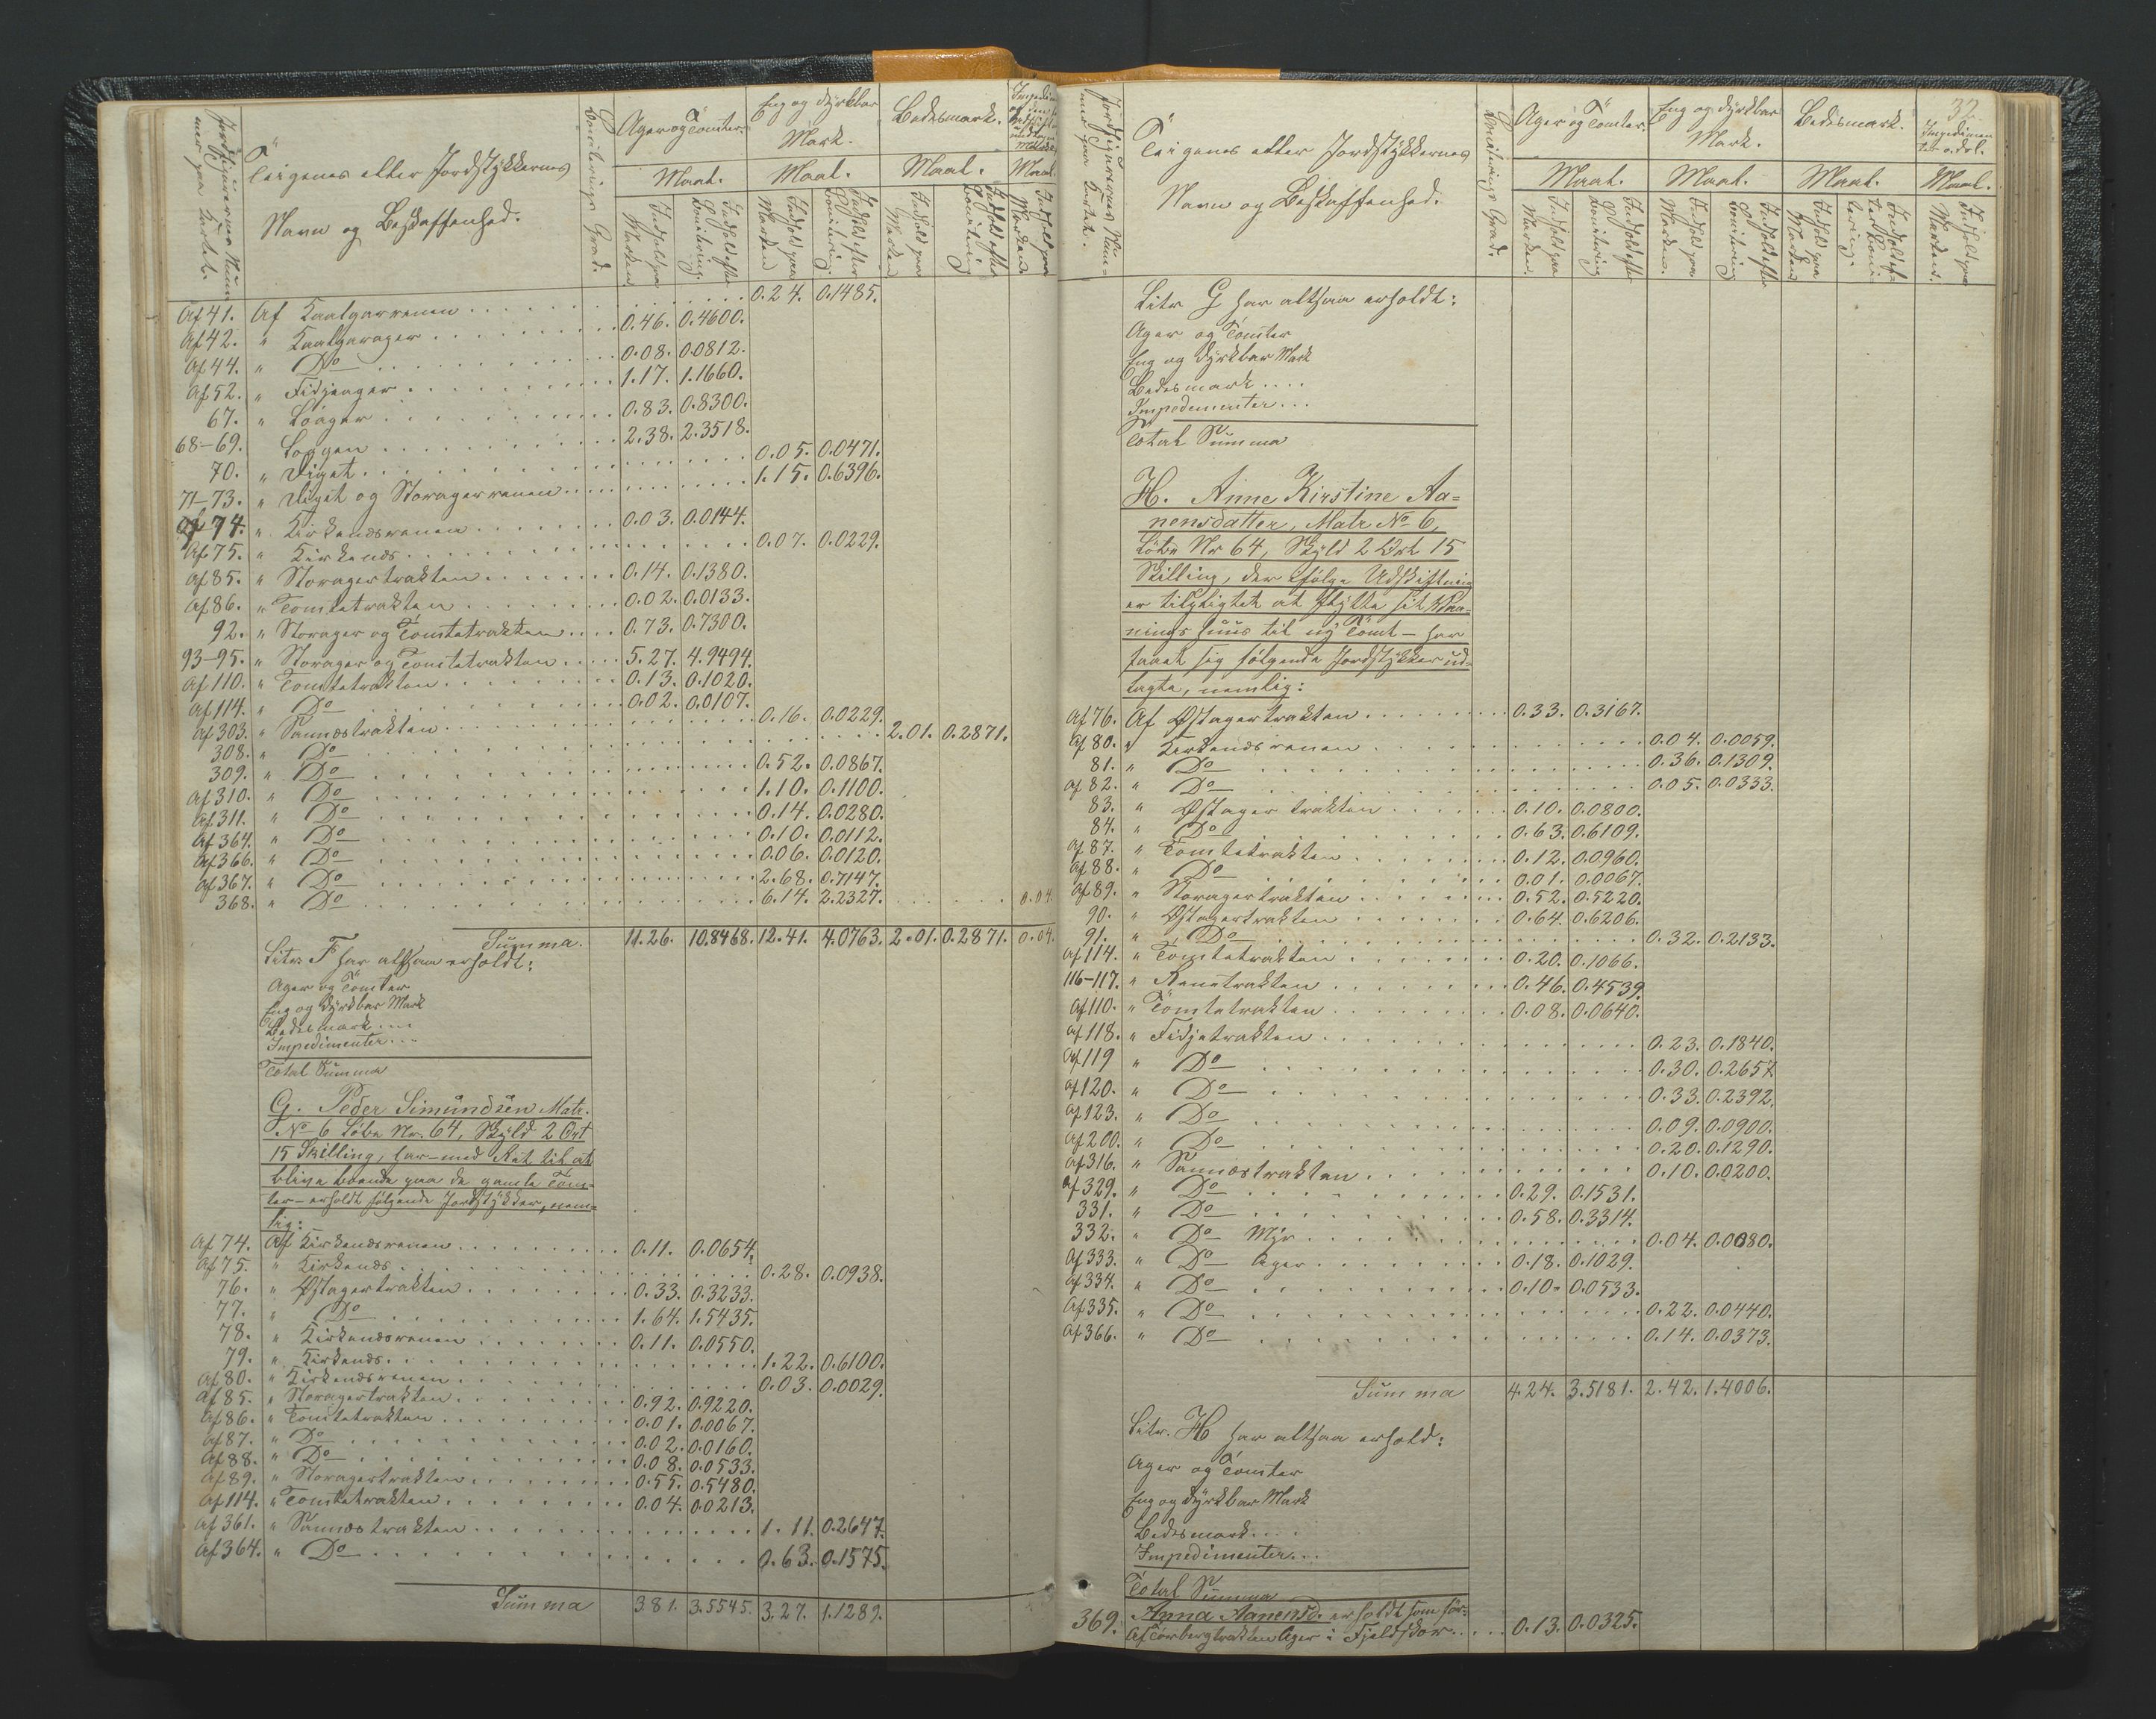 Jordfigurernes Num-
mer paa Kartet.
Teigenes eller Jordstykkernes
Navn og Beskaffenhed.
Boniterings Grad.
Ager og Tomter.
Eng og dyrkbar
Mark.
Bedesmark.
Maal. Maal. Maal. Maal.
Indhold paa Marken
Indhold efter Bonitering.
Indhold paa Marken
Indhold efter Bonitering
Indhold paa Marken
Indhold efter Bonitering
Indhold paa Marken
Af 41. Af Kaalgarrenen 0.24. 0.1485.
Af 42. " Kaalgarager 0.46. 0.4600.
Af 44. " Do 0.08. 0.0812.
Af 52. " Fidjeager 1.17. 1.1660.
67. " Löager 0.83. 0.8300.
68–69. Loggen 2.38. 2.3518.
70. " Diget 0.05. 0.0471.
71–73. " Diget og Storagerrenen 1.15. 0.6396.
Af 74. " Kirkendsrenen 0.03. 0.0144.
Af 75. " Kirkends 0.07. 0.0229.
Af 85. " Storagertrakten 0.14. 0.1380.
Af 86. " Tomtetrakten 0.02. 0.0133.
92. " Storager og Tomtetrakten 0.73. 0.7300.
93–95. " Storager og Tomtetrakten 5.27. 4.9494.
Af 110. " Tomtetrakten 0.13. 0.1020.
Af 114. " Do 0.02. 0.0107.
Af 303. " Sannestrakten 0.16. 0.0229.
308. " Do 2.01. 0.2871.
309. " Do 0.52. 0.0867.
Af 310. " Do 1.10. 0.1100.
Af 311. " Do 0.14. 0.0280.
Af 364. " Do 0.10. 0.0112.
Af 366. " Do 0.06. 0.0120.
Af 367. " Do 2.68. 0.7147.
368. " Do 6.14. 2.2327. 0.04.
Summa. 11.26. 10.8468. 12.41. 4.0763. 2.01. 0.2871. 0.04.
Litr. F har altsaa erholdt:
Ager og Tomter
Eng og dyrkbar Mark
Bedesmark....
Impedimenter...
Total Summa
G. Peder Simundsen Matr.
No 6 Löbe Nr. 64, Skyld 2 Ort
15 Skilling, har – med Ret til at
blive boende paa de gamle Tom-
ter – erholdt følgende Jordstykker, nem-
lig:
Af 74. Af Kirkendsrenen 0.11. 0.0654.
Af 75. " Kirkends 0.28. 0.0938.
76. " Østagertrakten 0.33. 0.3233.
77. " Do 1.64. 1.5435.
78. " Kirkendsrenen 0.11. 0.0550.
79. " Kirkends 1.22. 0.6100.
Af 80. " Kirkendsrenen 0.03. 0.0029.
Af 85. " Storagertrakten 0.92. 0.9220.
Af 86. " Tomtetrakten 0.01. 0.0067.
Af 87. " Do 0.02. 0.0160.
Af 88. " Do 0.08. 0.0533.
Af 89. " Storagertrakten 0.55. 0.5480.
Af 114. " Tomtetrakten 0.04. 0.0213.
Af 361. " Sannestrakten 1.11. 0.2647.
Af 364. " Do 0.63. 0.1575.
Summa 3.81. 3.5545. 3.27. 1.1289.
32
Jordfigurernes Num-
mer paa Kartet.
Teigenes eller Jordstykkernes
Navn og Beskaffenhed.
Boniterings Grad.
Ager og Tomter.
Eng og dyrkbar
Mark.
Bedesmark.
Impedimen
ter o.dsl.
Maal. Maal. Maal. Maal.
Indhold paa Marken.
Indhold efter Bonitering
Indhold paa Marken.
Indhold efter Bonitering
Indhold paa Marken
Indhold ef-ter Boni-tering.
Indhold paa Marken.
Litr G har altsaa erholdt:
Ager og Tomter
Eng og dyrkbar Mark
Bedesmark....
Impedimenter...
Total Summa
H. Anne Kirstine Aa-
nensdatter, Matr No 6,
Löbe Nr 64, Skyld 2 Ort 15
Skilling, der ifølge Udskiftning
er tilpligtet at flytte sit Vaa-
ningshuus til ny Tomt – har
faaet sig følgende Jordstykker ud-
lagte, nemlig:
Af 76. Af Østagertrakten 0.33. 0.3167.
Af 80. " Kirkendsrenen 0.04. 0.0059.
81. " Do 0.36. 0.1309.
Af 82. " Do 0.05. 0.0333.
83. " Østagertrakten 0.10. 0.0800.
84. " Do 0.63. 0.6109.
Af 87. " Tomtetrakten 0.12. 0.0960.
Af 88. " Do 0.01. 0.0067.
Af 89. " Storagertrakten 0.52. 0.5220.
90. " Østagertrakten 0.64. 0.6206.
91. " Do 0.32. 0.2133.
Af 114. " Tomtetrakten 0.20. 0.1066.
116–117. " Renetrakten 0.46. 0.4539.
Af 110. " Tomtetrakten 0.08. 0.0640.
Af 118. " Fidjetrakten 0.23. 0.1840.
Af 119 " Do 0.30. 0.2657.
Af 120. " Do 0.33. 0.2392.
Af 123. " Do 0.09. 0.0900.
Af 200. " Do 0.20. 0.1290.
Af 316. " Sannestrakten 0.10. 0.0200.
Af 329. " Do 0.29. 0.1531.
331. " Do 0.58. 0.3314.
332. " Do Myr 0.04. 0.0080.
Af 333. " Do Ager 0.18. 0.1029.
Af 334. " Do 0.10. 0.0533.
Af 335. " Do 0.22. 0.0440.
Af 366. " Do 0.14. 0.0373.
Summa 4.24. 3.5181. 2.42. 1.4006.
Litr. H har altsaa erhold:
Ager og Tomter
Eng og dyrkbar Mark
Bedesmark....
Impedimenter...
Total Summa
Anna Aanensd. erholdt som før:
369. Af Torbergtrakten Ager i Fjeldskor 0.13. 0.0325.